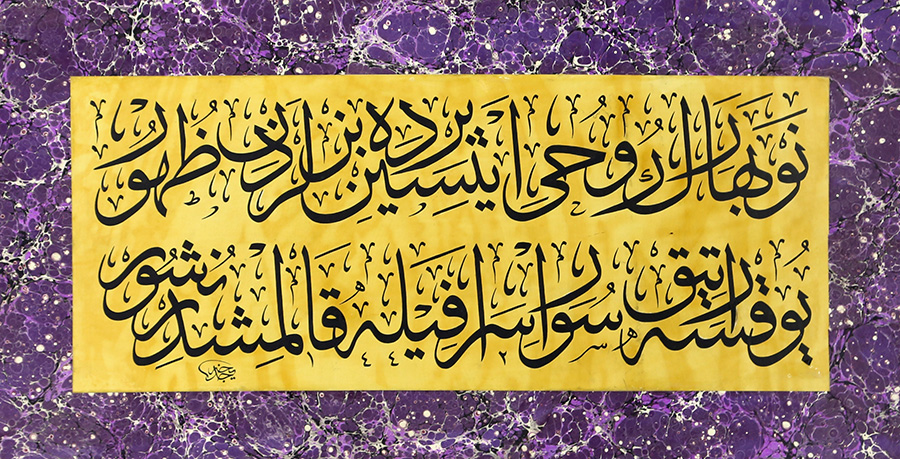 نَوبَهَارڭ رُوحى ايتسين يرده بزلردن ظهور
يوقسه ارتيق سور اسرافيله قالمشدر نشور